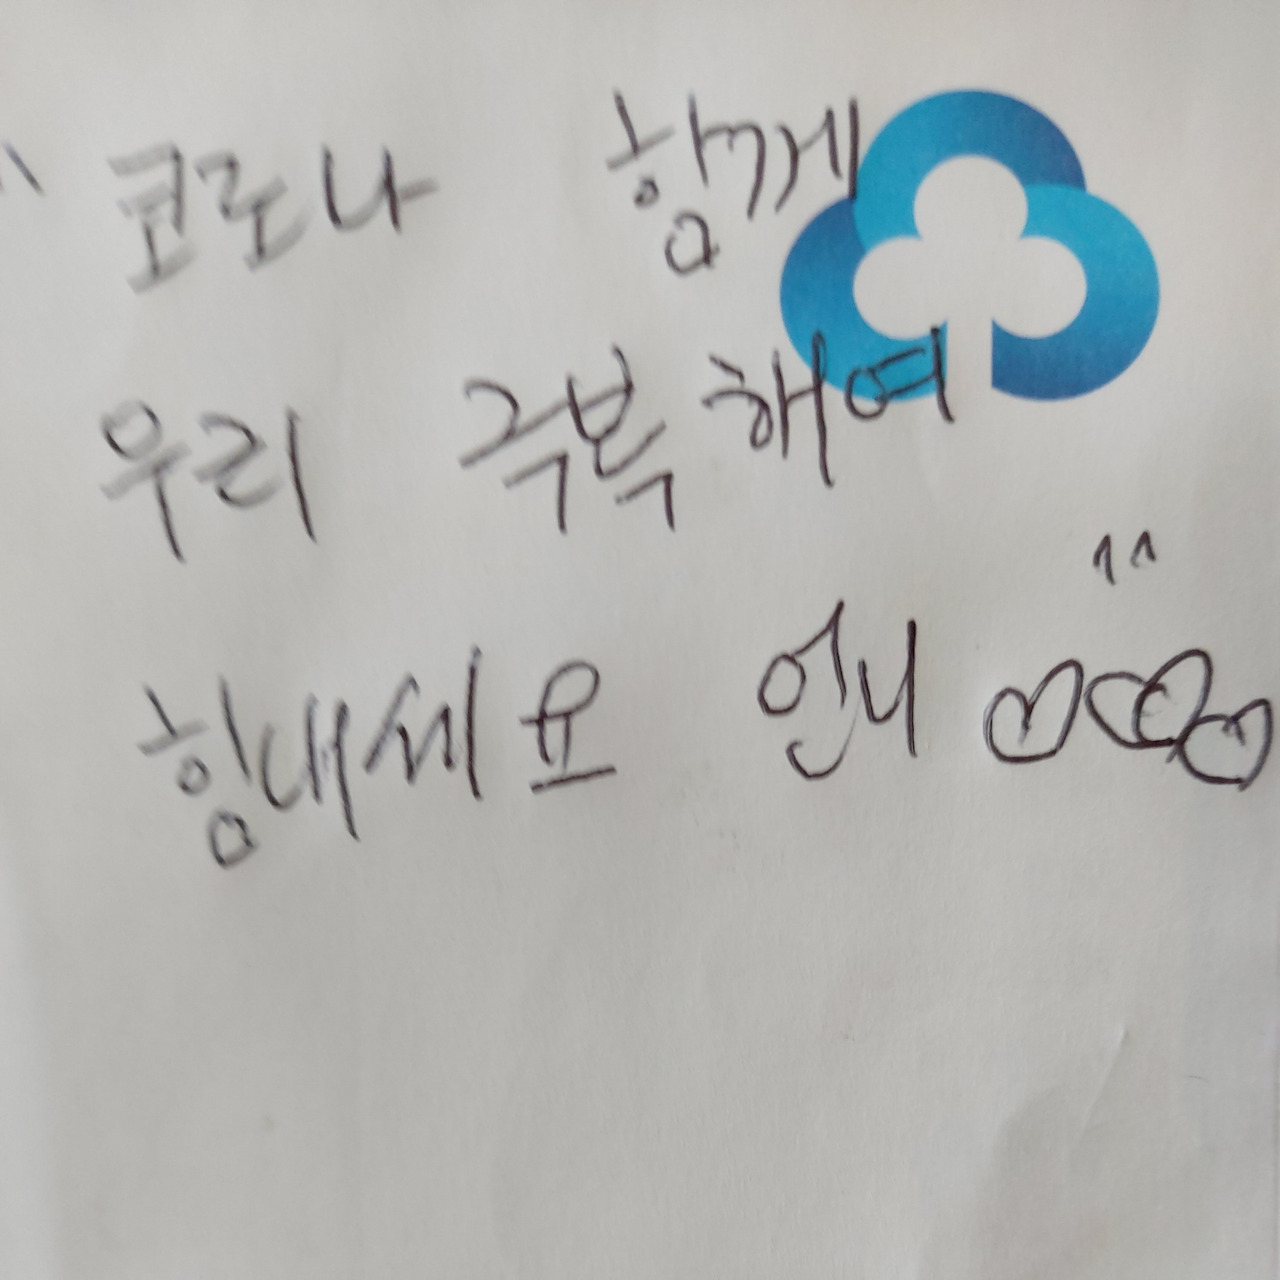 " 코로나 함께
우리 극복해여
힘내세요 언니 ♡♡♡♡ "